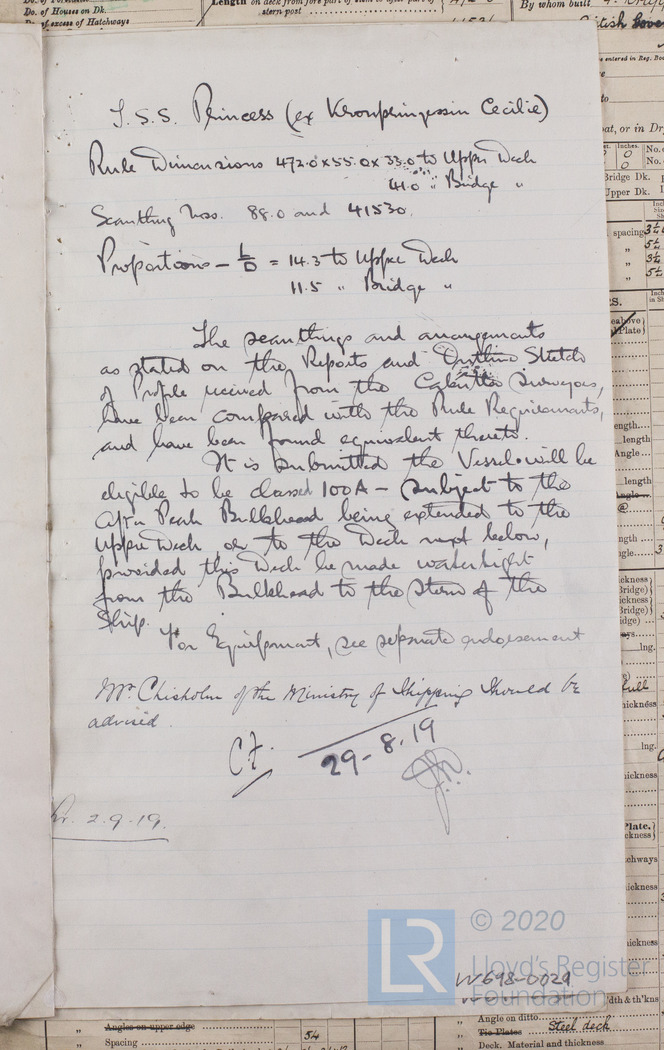 Do. of Houses on Dk.
Do. of excess of Hatchways
Length on deck from fore part of stem to after part of
stern post
By whom built
T.S.S. Princess (ex Kronprinzessin Cecilie)
Rule Dimensions 472.0 x 55.0 x 33.0 to Upper Deck
41.0 " Bridge "
Scantling Nos. 88.0 and 41530.
Proportions – L/D = 14.3 to Upper Deck
11.5 " Bridge "
The scantlings and arrangements
as stated on the Reports and Outline Sketch
of Profile received from the Calcutta Surveyors,
have been compared with the Rule Requirements,
and have been found equivalent thereto.
It is submitted the Vessel will be
eligible to be classed 100A – subject to the
After Peak Bulkhead being extended to the
Upper Deck or to the Deck next below,
provided this Deck be made watertight
from the Bulkhead to the Stern of the
Ship.
For Equipment, see separate endorsement
Mr. Chisholm of the Ministry of Shipping should be
advised.
29-8.19
2.9.19.
© 2020
LR
Lloyd's Register
Foundation
W698-0029
Angles on upper edge
Spacing
Angle on ditto
Tie Plates Steel deck
Deck. Material and thickness